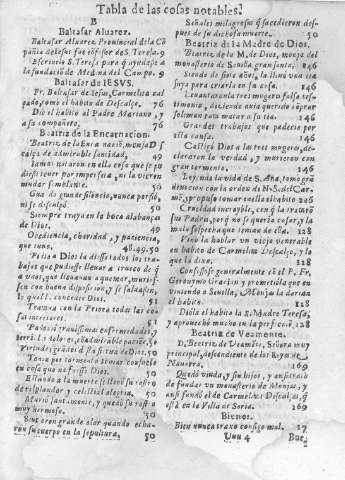 Tabla de las cosas notables.
B
Baltasar Aluarez.
Baltasar Aluarez Prouincial de la Cõ
pañia de Iesus fue cõfessor de S. Teresa. 9
Escriuele S. Teresa para q̃ ayudasse a
la fundaciõ de Medina del Campo. 9
Baltasar de IESVS.
Fr. Baltasar de Iesus, Carmelita cal
çado, tomò el habito de Descalço. 76
Diò el habito al Padre Mariano, y
a su compañero. 76
Beatriz de la Encarnacion.
Beatriz de la Encarnació, monja Des
calça de admirable santidad. 49
Iamas miraron en ella cosa que se pu
diesse tener por imperfeta, ni la vieron
mudar semblante. 50
Gua da gran de silencio, nunca porfiò,
ni se desculpò. 50
Siempre traya en la boca alabanças
de Dios. 49
Obediencia, charidad, y paciencia,
que tuuo. 48.49.50
Pidiò a Dios la diesse todos los tra
bajos que pudiesse lleuar a trueco de q̃
a vnos, que lleuauan a quemar, muries-
sen con buena disposicion, y se saluassen,
lo qual l. concediò Dios. 51
Trataua con la Priora todas las co
sas interiores. 51
Padeciò grauissimas enfermedades, y
terribles dolores, cõ admirable paciẽc. 50
Virtudes grandes desta sierua de Dios. 50
Tenia por tormento tomar consuelo
en cosa que no fuesse Dios. 50
Estando a la muerte se lleno su rostro
de resplandor y celestial alegria. 50
Muriò santamente, y quedò su rostro
muy hermoso. 50
Sintieron grande olor quando echa
ron su cuerpo en la sepultura. 50
Señales milagrosas q̃ sucedieron des-
pues de su dichosa muerte. 50
Beatriz de la Madre de Dios.
Beatriz de la M. de Dios, monja del
monasterio de Seuilla gran santa. 146
Siendo de siete años, la lleuò vna tia
suya para criarla en su casa. 146
Leuantaronla tres mugeres falso tes-
timonio, diciendo auia querido comprar
soliman para matar a su tia. 146
Grandes trabajos que padecio por
esta causa. 146
Castigò Dios a las tres mugeres, de-
clararon la verdad, y murieron con
gran tormento. 146
Leyendo la vida de S. Ana, tomò grã
deuocion con la orden de N. S. del Car-
mẽ, y propuso tomar su ella el habito 226
Crueldad increyble, con q̃ la trataro
sus Padres, porq̃ no se queria casar, y la
mala sospecha que tenian de ella. 128
Vino la hablar vn viejo venerable
en habito de Carmelita Descalço, y lo
que la dixo. 128
Confessose generalmente cõ el P. Fr.
Geronymo Gracian, y prometiòla que en
viniendo a Seuilla, Monja la darian
el habito. 128
Diòla el habito la S. Madre Teresa,
y aprouechò mucho en la perficciõ. 128
Beatriz de Veamonte.
D. Beatriz de Veamõte, Señora muy
principal, descendiente de los Reyes de
Nauarra. 169
Quedò viuda, y sin hijos, y ansi tratò
de fundar vn monasterio de Monjas, y
ansi fundò el de Carmelitas Descalças, q̃
està en la Villa de Soria. 169
Bienes.
Bien nunca traxo consigo mal. 17
Vuu 4 Bue.